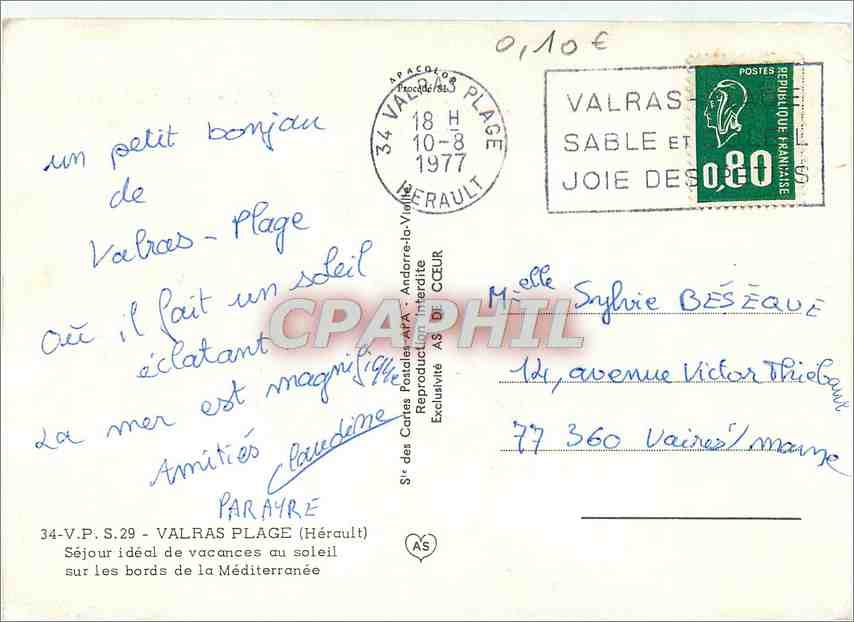 0,10 €
APACOLOR
Procédé 813
34 VALRAS PLAGE
18 H
10-8
1977
HERAULT
VALRAS-
SABLE ET
JOIE DES
POSTES
REPUBLIQUE FRANÇAISE
0,80
un petit bonjou
de
Valras-Plage
Où il fait un soleil
éclatant
La mer est magnifique
Amitiés Claudine
PARAYRE
34-V.P. S.29 - VALRAS PLAGE (Hérault)
Séjour idéal de vacances au soleil
sur les bords de la Méditerranée
Sté des Cartes Postales APA - Andorre-la-Vieille
Reproduction Interdite
Exclusivité AS DE CŒUR
AS
CPAPHIL
Melle Sylvie BESEQUE
14, avenue Victor Thiébaut
77 360 Vaires/marne